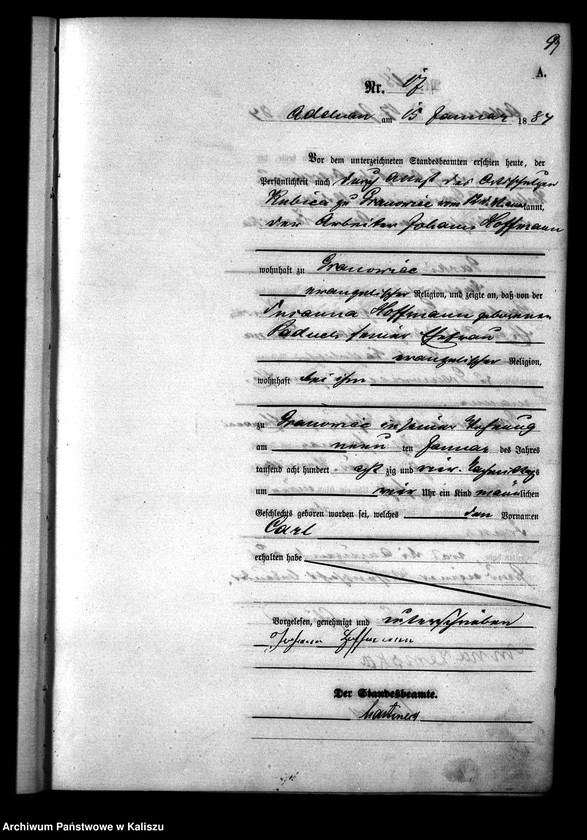 A.
Nr. 17.
Adelnau am 15 Januar 1884
Vor dem unterzeichneten Standesbeamten erschien heute, der
Persönlichkeit nach durch Attest des Ortsschulzen
Kubica zu Granowiec vom kannt,
der Arbeiter Johann Hoffmann
wohnhaft zu Granowiec
evangelischer Religion, und zeigte an, daß von der
Susanna Hoffmann geborenen
seiner Ehefrau
evangelischer Religion,
wohnhaft bei ihm
zu Granowiec in seiner Wohnung
am neun ten Januar des Jahres
tausend acht hundert acht zig und vier Nachmittags
um vier Uhr ein Kind männlichen
Geschlechts geboren worden sei, welches den Vornamen
Carl
erhalten habe
Vorgelesen, genehmigt und unterschrieben
Johann Hoffmann
Der Standesbeamte.
Archiwum Państwowe w Kaliszu